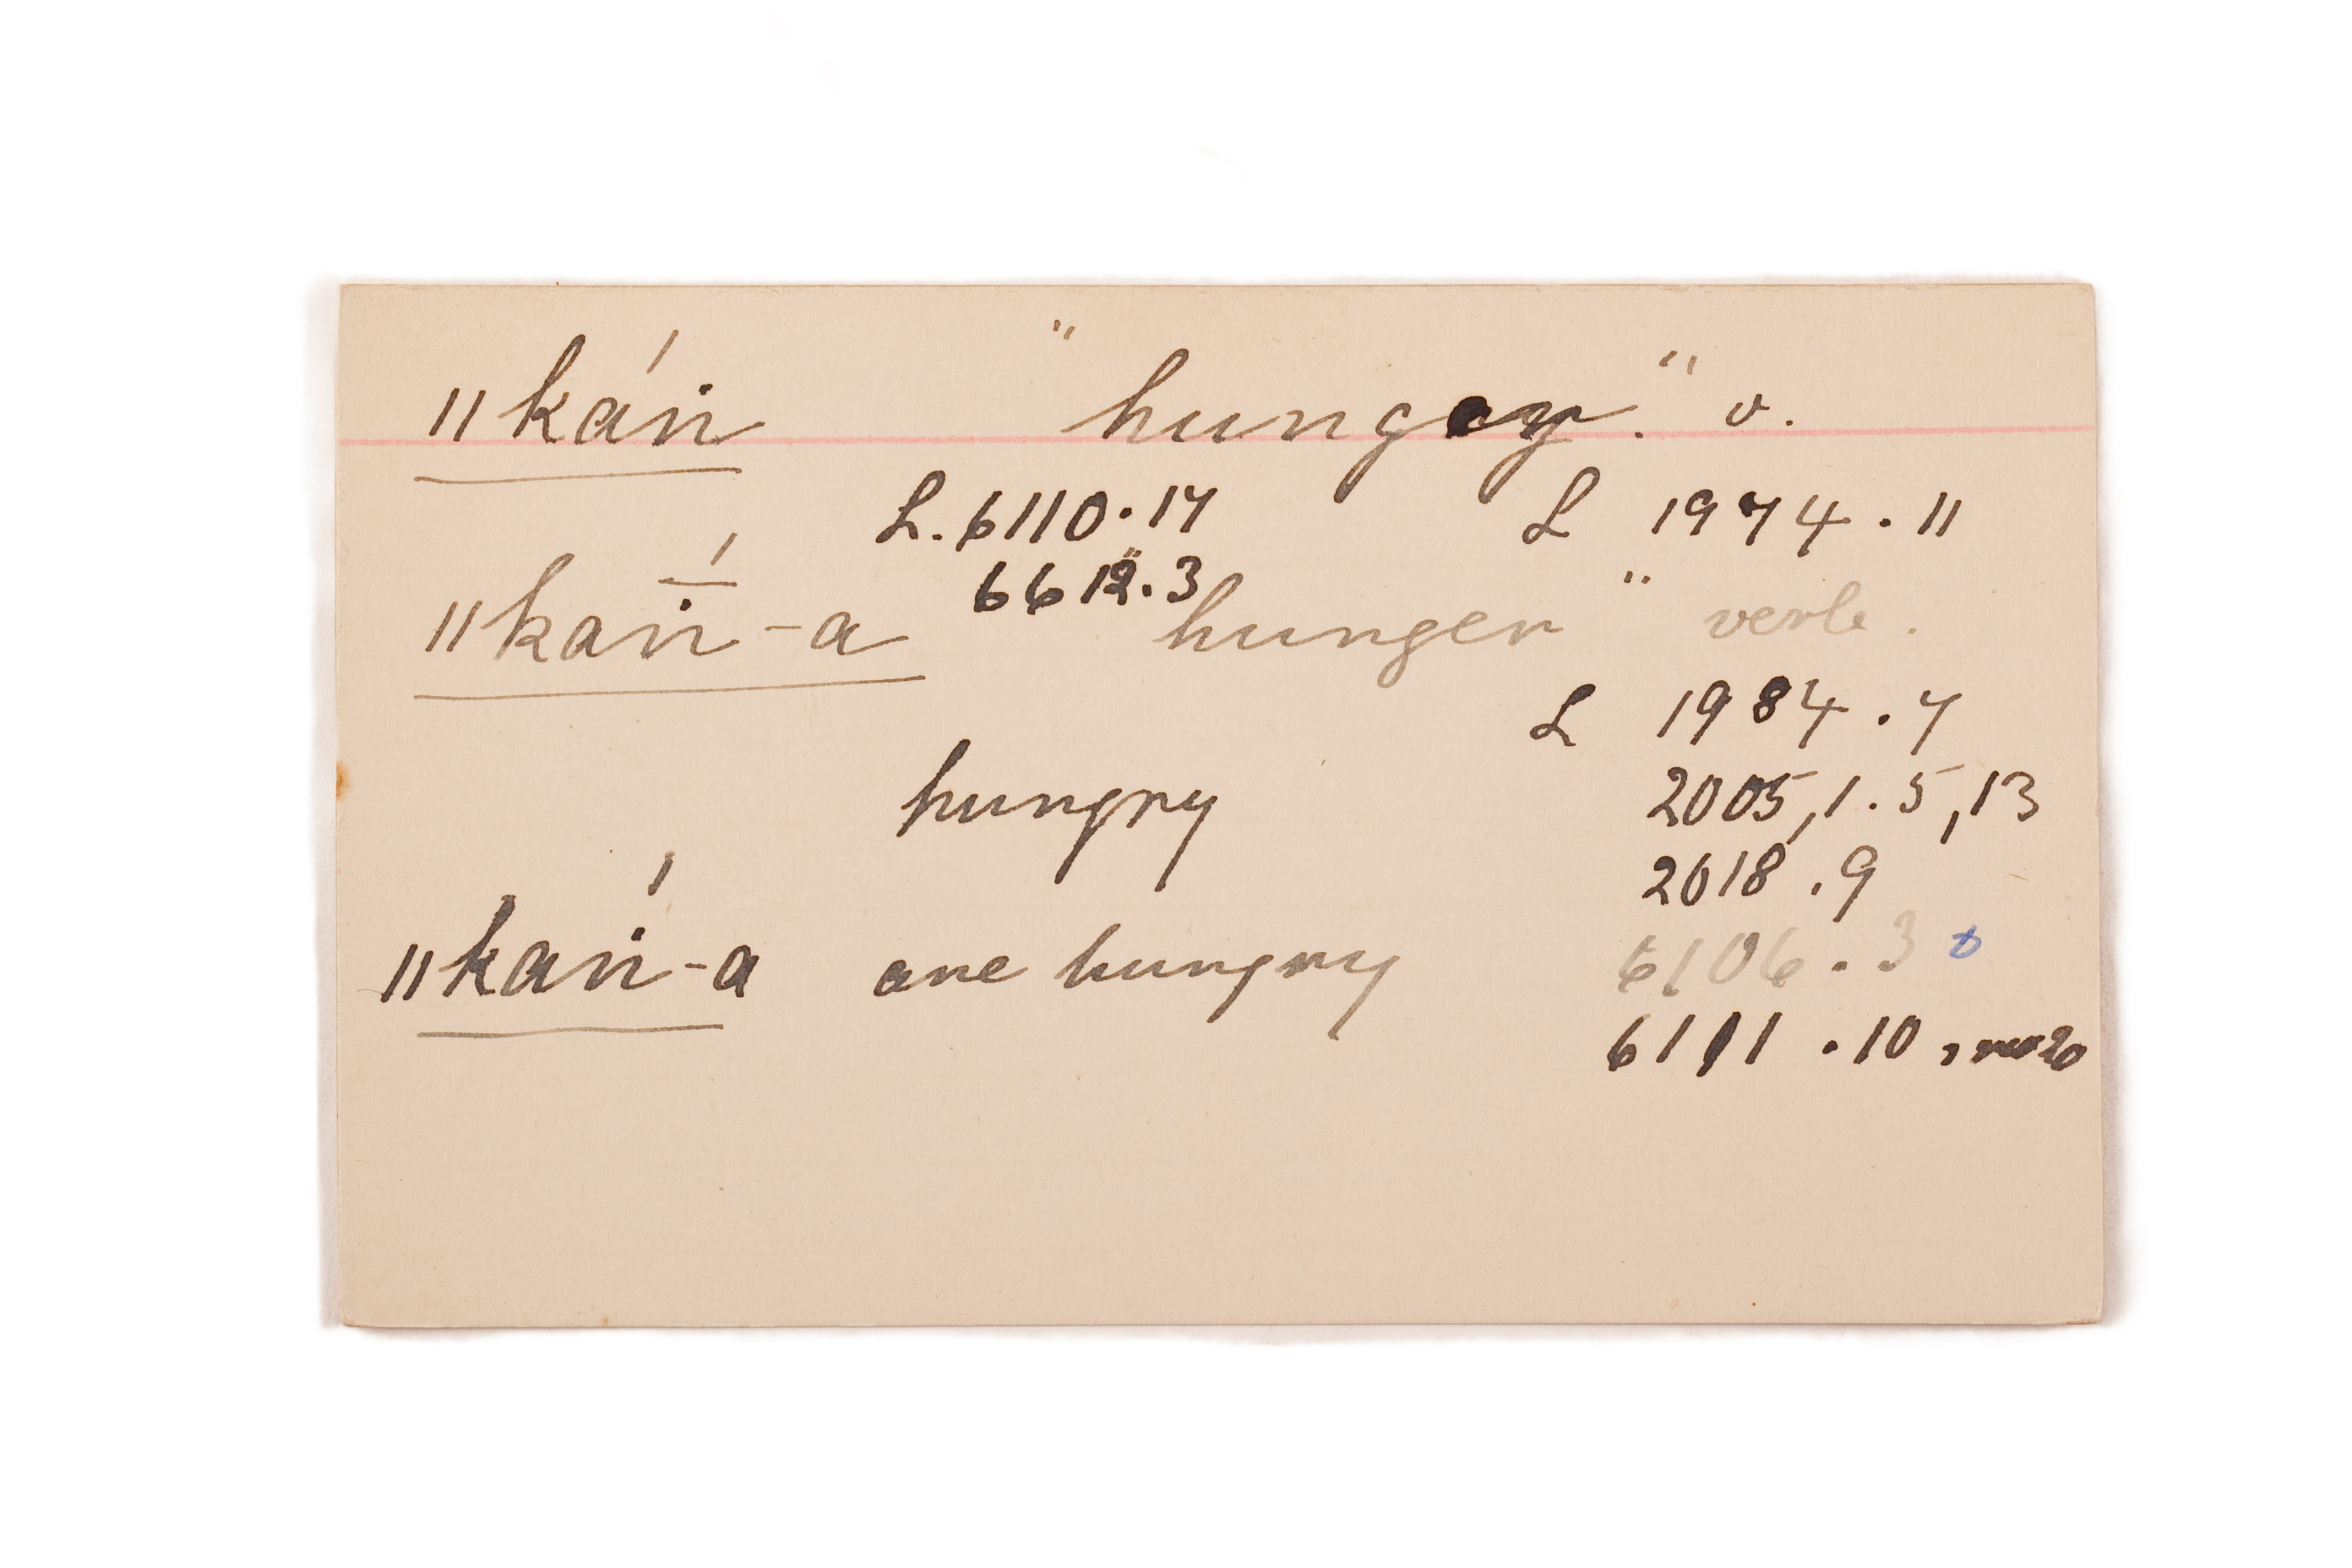 ǁkáṅ "hungry." v.
L. 6110.17 L 1974.11
6612.3
ǁkā́ṅ-a "hunger" verb.
L 1984.7
hungry 2005,1.5,13
2018.9
ǁkáṅ-a are hungry 6106.3
6111.10,